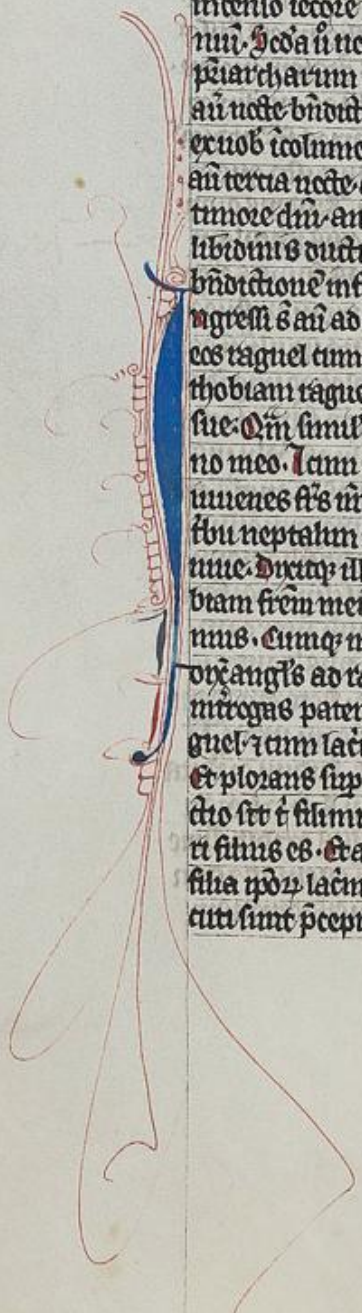 incenso iecore
niū. Scd̄a ū no
p̄riarcharum
aū nocte bn̄dict
ex uob̄ īcolume
aū tercia nocte.
timore dn̄i. am
libidinis ducti
bn̄dictionē
Ingressi s̄ aū ad
eos raguel cum
thobiam rague
sue. Qm̄ simil
no meo. Icum
iuuenes fr̄s n̄r
t̄bu neptalim
niue. Dixitq; ill
biam frēm mei
mus. Cumq; m
dix̄ angl̄s ad ra
īt̄rogas pater
guel ⁊ cum lac̄
Et plorans sup
dictio sit t̄ fili mi
ri filius es. Et a
filia ip̄oꝝ lac̄m
cuti sunt p̄cepi